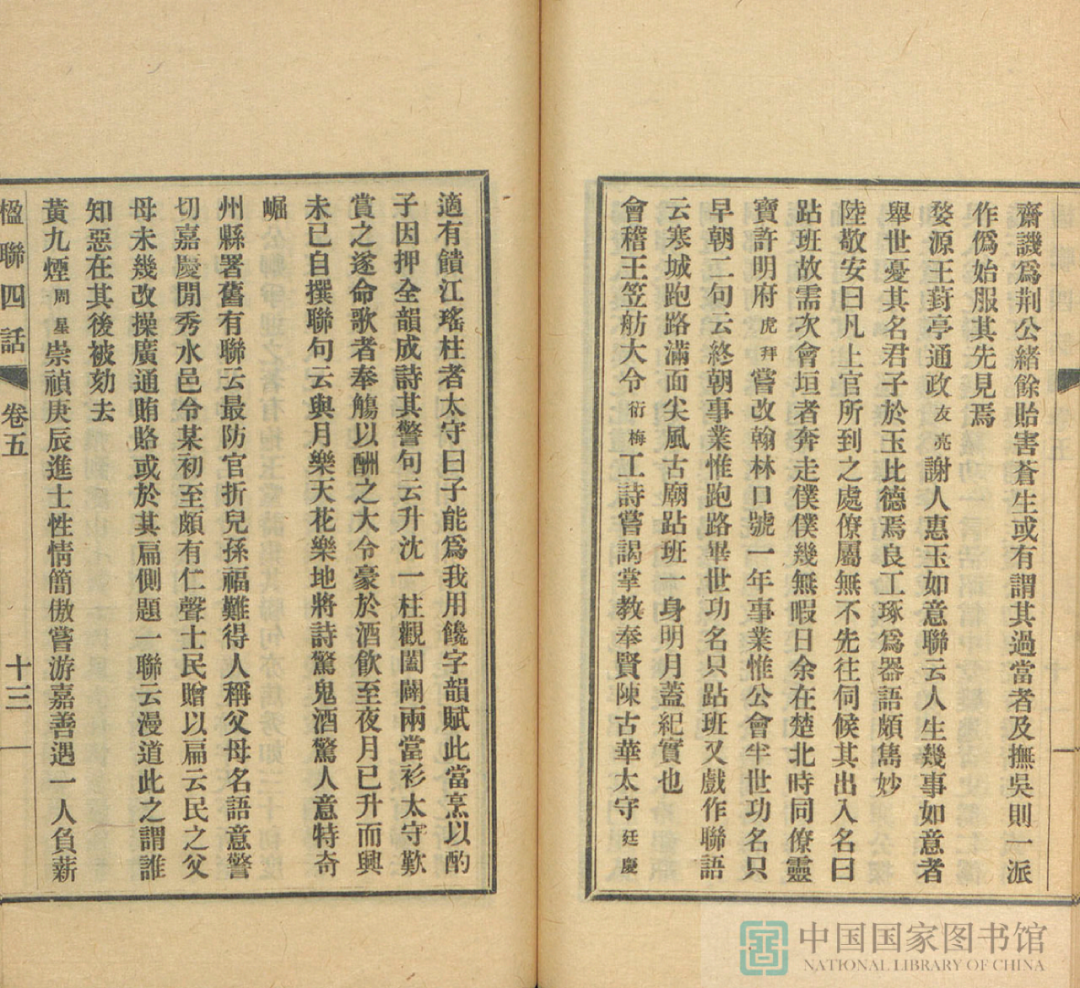 齋譏爲荆公緒餘貽害蒼生或有謂其過當者及撫吳則一派
作僞始服其先見焉
婺源王葑亭通政友亮謝人惠玉如意聯云人生幾事如意者
舉世憂其名君子於玉比德焉良工琢爲器語頗雋妙
陸敬安曰凡上官所到之處僚屬無不先往伺候其出入名曰
跕班故需次會垣者奔走僕僕幾無暇日余在楚北時同僚靈
寶許明府虎拜嘗改翰林口號一年事業惟公會半世功名只
早朝二句云終朝事業惟跑路畢世功名只跕班又戲作聯語
云寒城跑路滿面尖風古廟跕班一身明月蓋紀實也
會稽王笠舫大令衍梅工詩嘗謁掌教奉賢陳古華太守廷慶
適有饋江瑤柱者太守曰子能爲我用饞字韻賦此當烹以酌
子因押全韻成詩其警句云升沈一柱觀闔闢兩當衫太守歎
賞之遂命歌者奉觴以酬之大令豪於酒飲至夜月已升而興
未已自撰聯句云與月樂天花樂地將詩驚鬼酒驚人意特奇
崛
州縣署舊有聯云最防官折兒孫福難得人稱父母名語意警
切嘉慶閒秀水邑令某初至頗有仁聲士民贈以扁云民之父
母未幾改操廣通賄賂或於其扁側題一聯云漫道此之謂誰
知惡在其後被劾去
黃九煙周星崇禎庚辰進士性情簡傲嘗游嘉善遇一人負薪
楹聯四話 卷五 十三
中国国家图书馆
NATIONAL LIBRARY OF CHINA